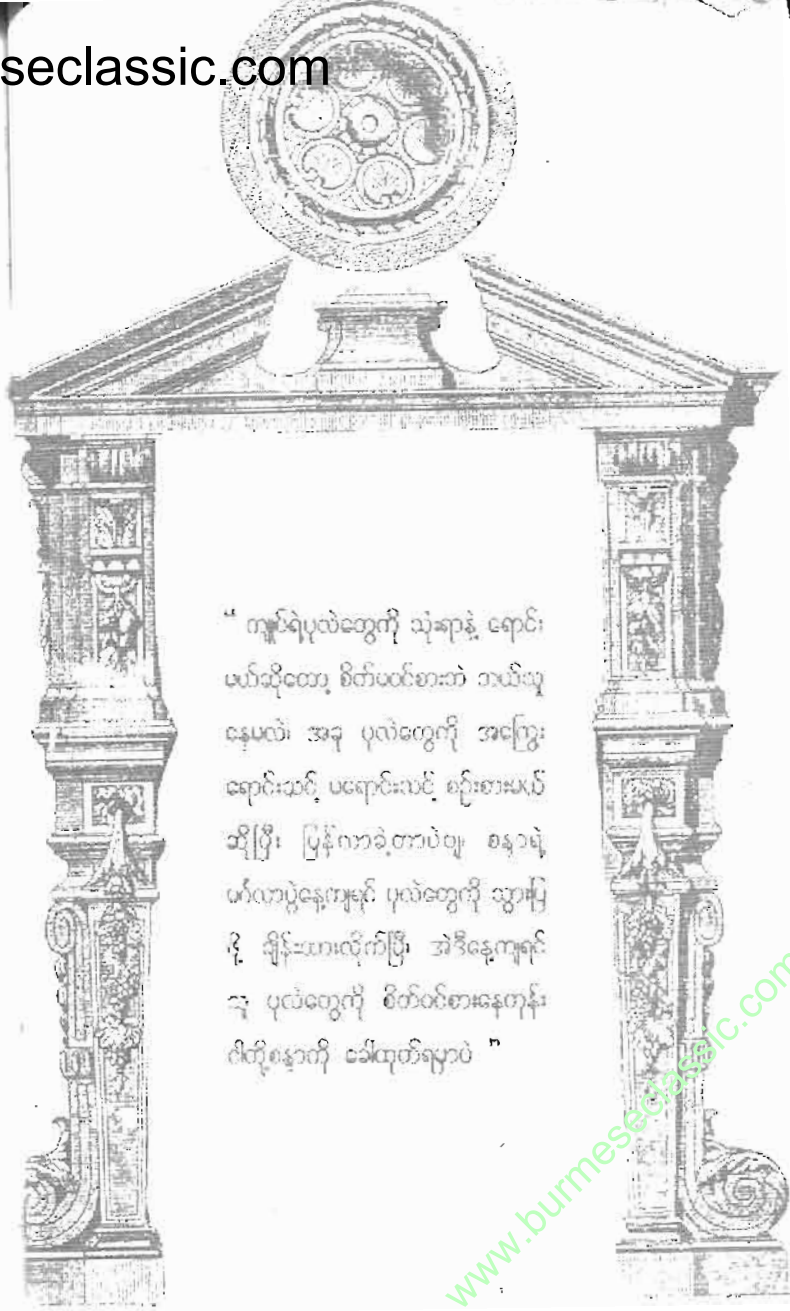 seclassic.com
“ ကျုပ်ရဲ့ပုလဲတွေကို သုံးရာနဲ့ ရောင်း
မယ်ဆိုတော့ စိတ်မဝင်စားဘဲ ဘယ်သူ
နေမလဲ၊ အခု ပုလဲတွေကို အကြွေး
ရောင်းသင့် မရောင်းသင့် စဉ်းစားမယ်
ဆိုပြီး ပြန်လာခဲ့တာပဲဗျ၊ စန္ဒာရဲ့
မင်္ဂလာပွဲနေ့ကျရင် ပုလဲတွေကို သွားပြ
ဖို့ ချိန်းထားလိုက်ပြီ၊ အဲဒီနေ့ကျရင်
သူ ပုလဲတွေကို စိတ်ဝင်စားနေတုန်း
ငါတို့စန္ဒာကို ခေါ်ထုတ်ရမှာပဲ ”
www.burmeseclassic.com